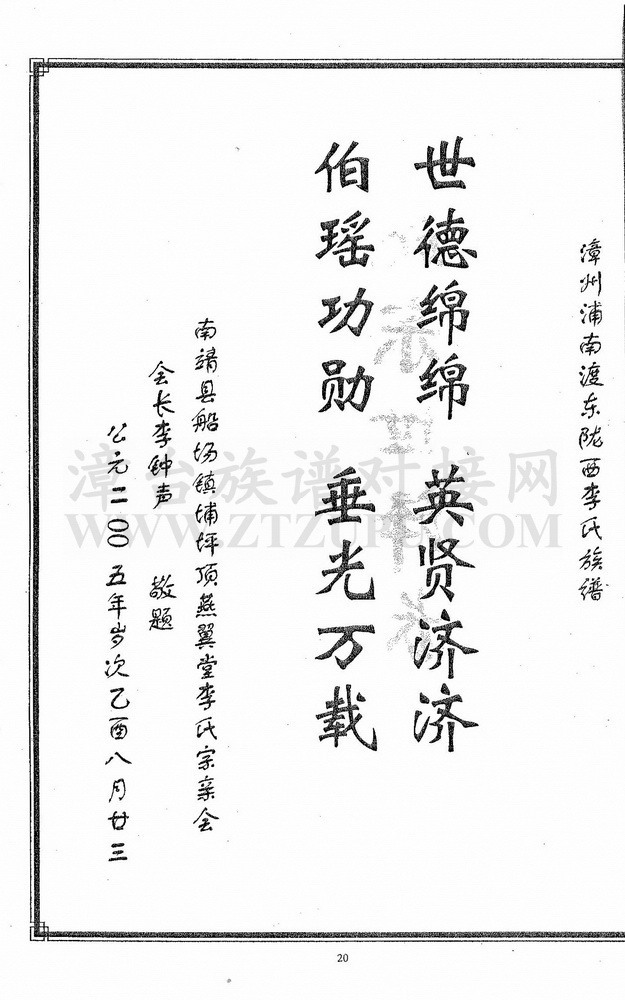 漳州浦南渡东陇西李氏族谱
世德绵绵 英贤济济
伯瑶功勋 垂光万载
南靖县船场镇埔坪顶燕翼堂李氏宗亲会
会长李钟声 敬题
公元二00五年岁次乙酉八月廿三
漳台族谱对接网
WWW.ZTZUPU.COM
20